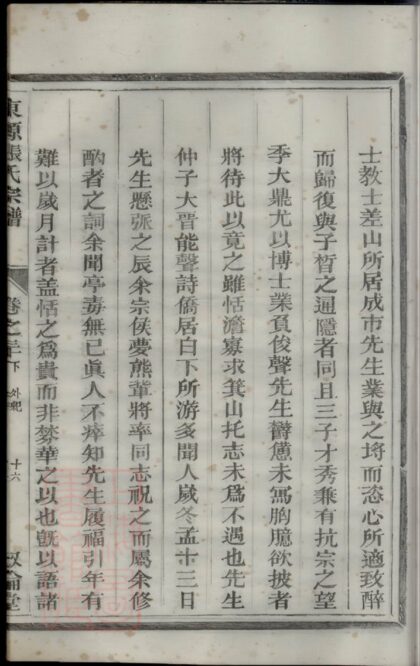 士教士差山所居成市先生業與之埒而恣心所適致醉
而歸復與子晳之逋隱者同且三子才秀兼有抗宗之望
季大鼎尤以博士業負俊聲先生鬱憊未寫胸臆欲披者
將待此以竟之雖恬澹寡求箕山托志未爲不遇也先生
仲子大晋能聲詩僑居白下所游多聞人歲冬孟廿三日
先生懸弧之辰余宗侯夢熊輩將率同志祝之而屬余修
酌者之詞余聞亭毒無已眞人不瘁知先生履福引年有
難以歲月計者盖恬之爲貴而非棼華之以也旣以語諸
東源張氏宗譜
卷之三下 外紀 十六
敘倫堂